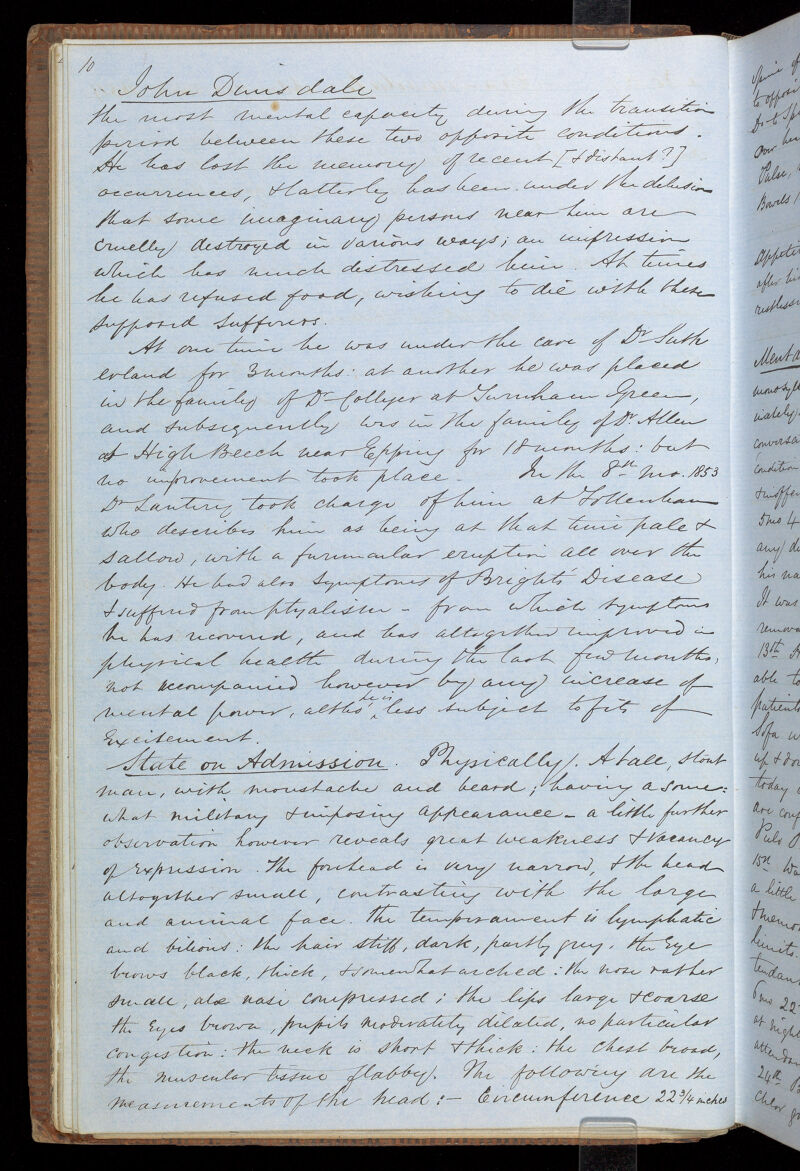 10
John Dimsdale
the most mental capacity during the transition
period between these two opposite conditions.
He has lost the memory of recent [& distant?]
occurrences, & latterly has been under the delusion
that some imaginary persons near him are
cruelly destroyed in various ways; an impression
which has much distressed him. At times
he has refused food, wishing to die with these
supposed sufferers.
At one time he was under the care of Dr Suth
erland for 3 months: at another he was placed
in the family of Dr Collyer at Turnham Green,
and subsequently was in the family of Dr Allen
at High Beech near Epping for 18 months: but
no improvement took place. In the 8th mo. 1853
Dr took charge of him at Tottenham
who describes him as being at that time pale &
sallow, with a furuncular eruption all over the
body. He had also symptoms of Bright's Disease
& suffered from ptyalism - from which symptoms
he has recovered, and has altogether improved in
physical health during the last few months,
not accompanied however by any increase of
mental power, altho' he is less subject to fits of
Excitement.
State on Admission. Physically. A tall, stout
man, with moustache and beard; having a some=
what military & imposing appearance - a little further
observation however reveals great weakness & vacancy
of expression. The forehead is very narrow, & the head
altogether small, contrasting with the large
and animal face. The temperament is lymphatic
and bilious: the hair stiff, dark, partly grey. the Eye
brows black, thick, & somewhat arched: the nose rather
small, alæ nasi compressed; the lips large & coarse
the Eyes brown, pupils moderately dilated, no particular
congestion: the neck is short & thick: the chest broad,
the muscular tissue flabby. The following are the
measurements of the head:- Circumference 22 3/4 inches
Spine of
to opposi
over
Pulse,
Bowels
Appetit
after
restless
Menta
monosyl
conversa
condition
5 mo 4
any
his na
It was
remova
13th
able to
patients
Sofa w
up & do
today
are
Puls
15th
a little
& memo
limits.
tendan
6 mo 22
at night
attendan
24th
Chlor